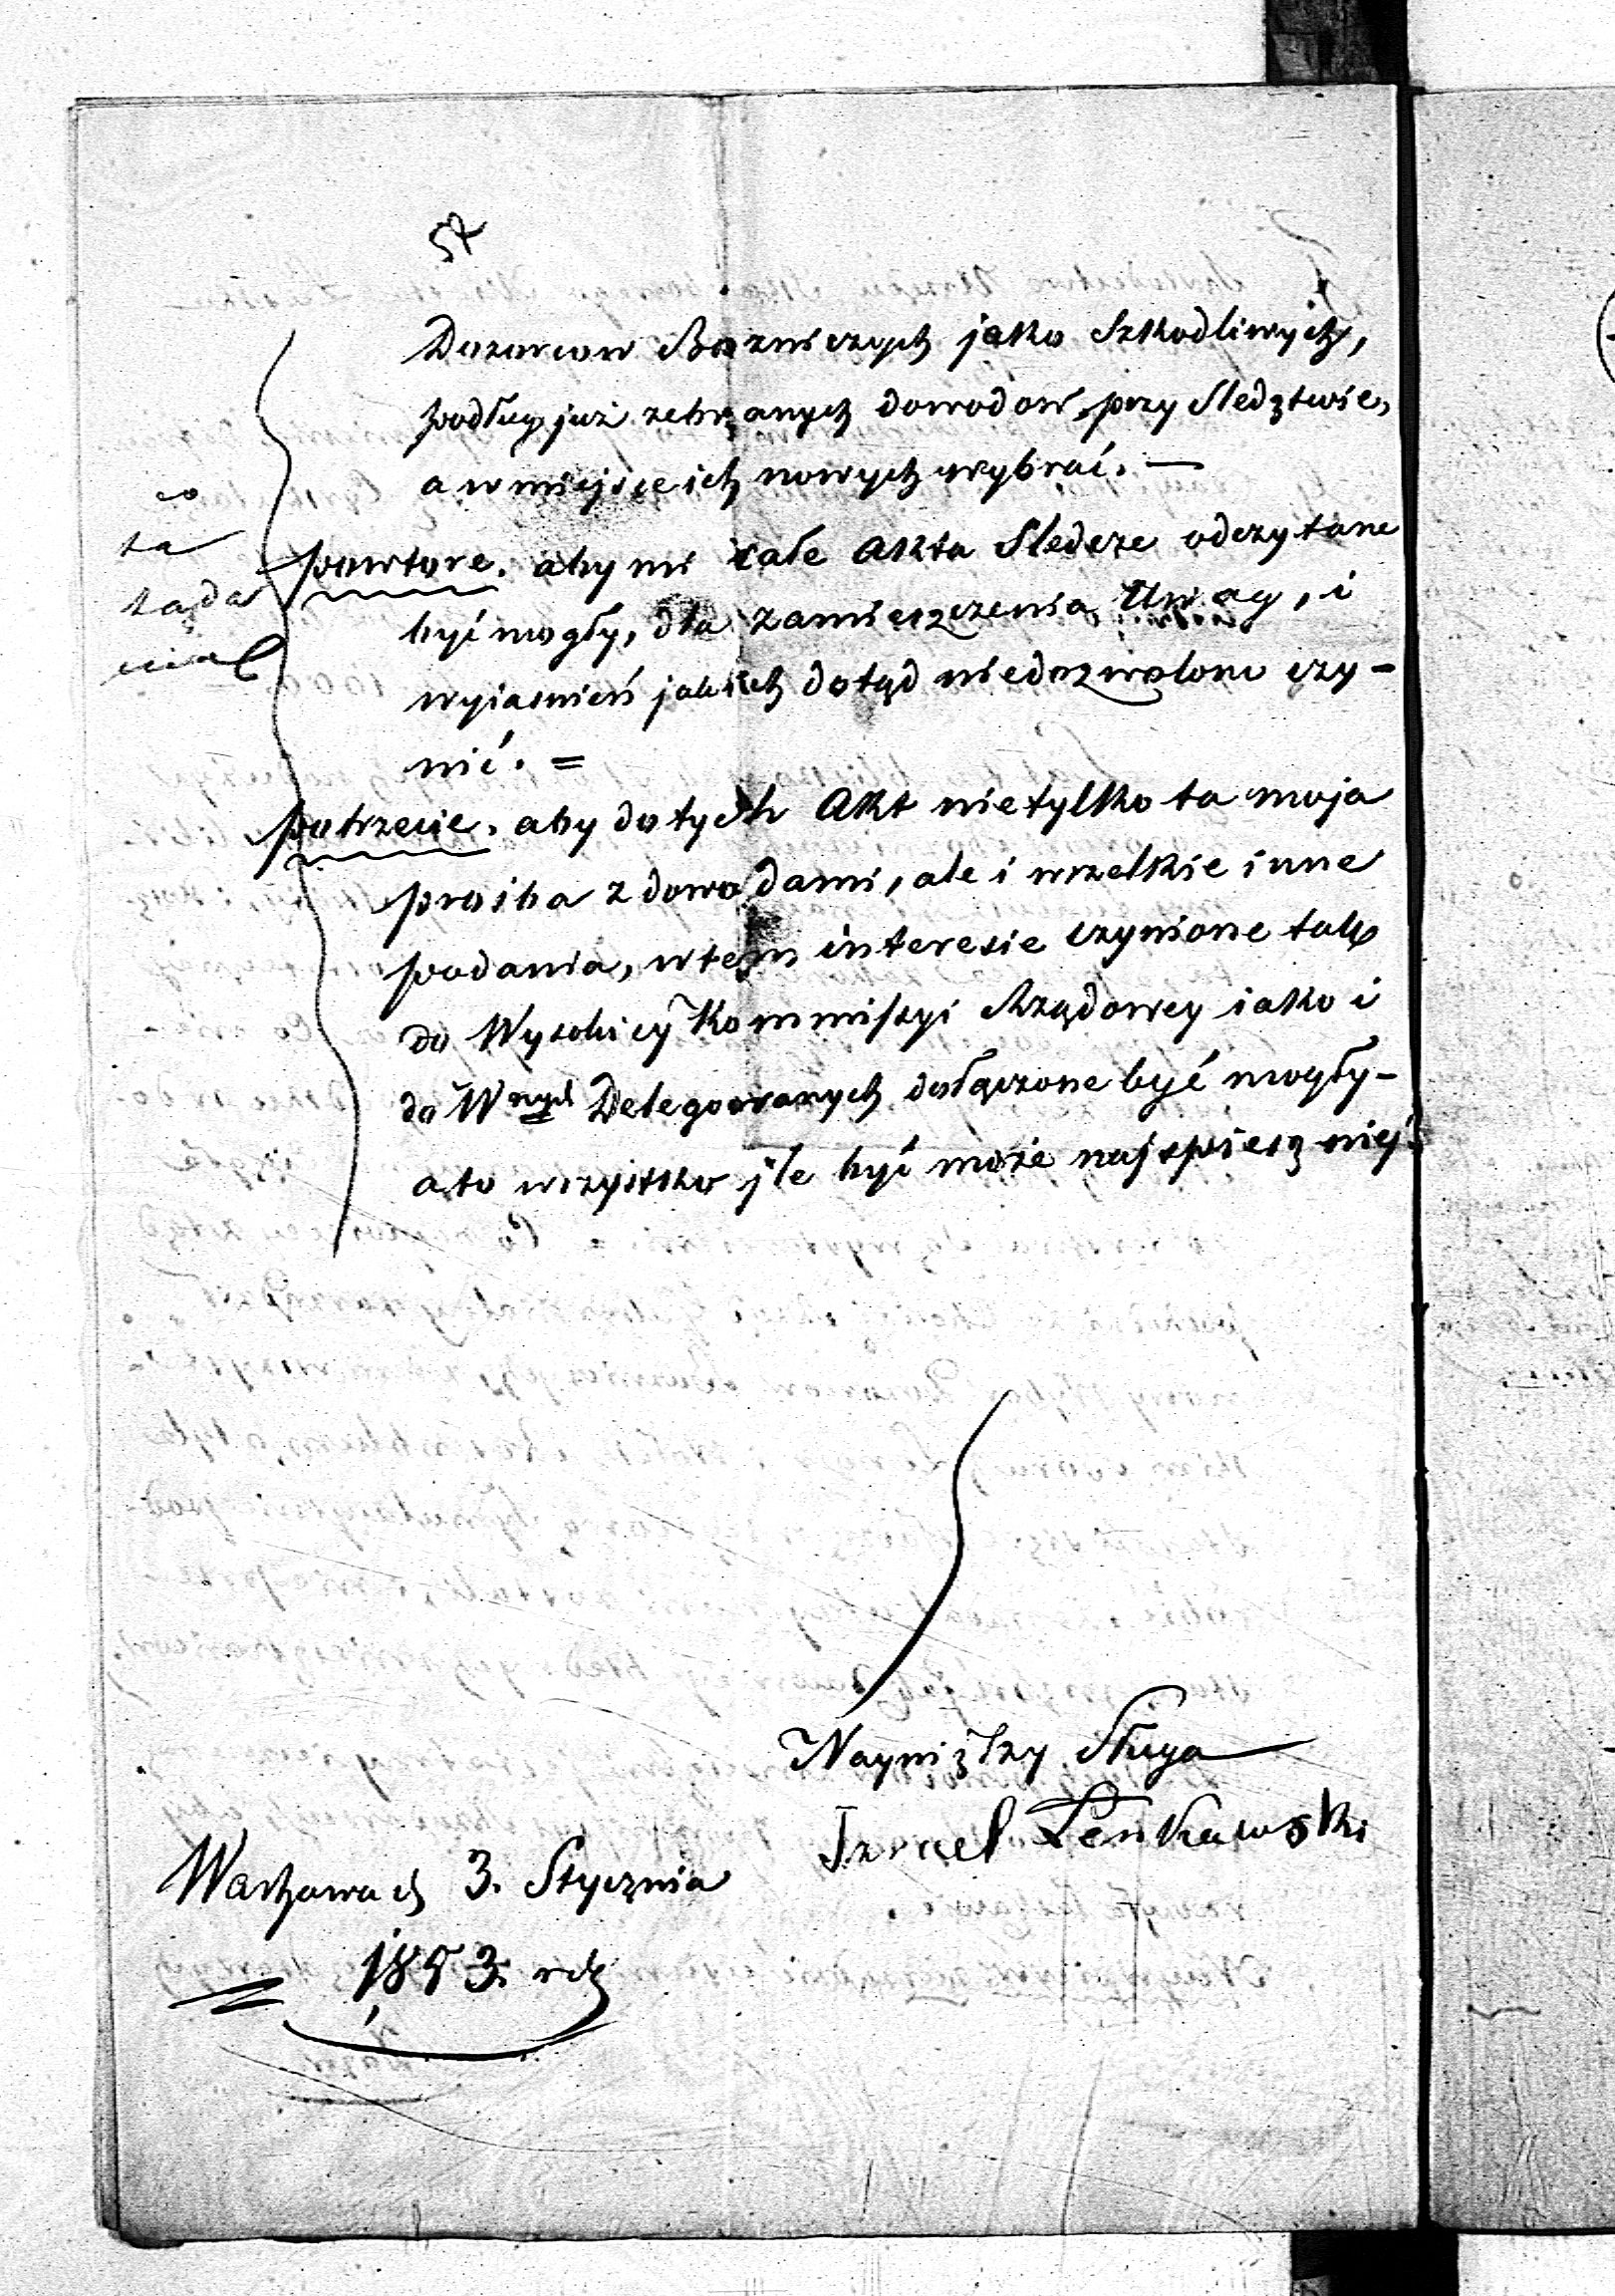 57
Dozorcow Bozniczych jako Szkodliwych,
podług już zebranych dowodow, przy Sledztwie,
a w miejsce ich nowych wybrać. —
co
za
żąda
nia
powtore. aby mi całe Akta Sledcze odczytane
być mogły, dla zamieszczenia Uwag, i
wyiasnień jakich dotąd niedozwolono czy-
nić. =
potrzecie. aby do tych Akt nietylko ta moja
prosba z dowodami, ale i wszelkie inne
podania, w tem interesie czynione tak
do Wysokiey Kommissyi Rządowey iako i
do Wnych Delegowanych dołączone być mogły-
a to wszystko jle być może najspieszniej.
Nayniższy Sługa
Izrael Lenkawski
Warszawa d. 3. Stycznia
1853. rk